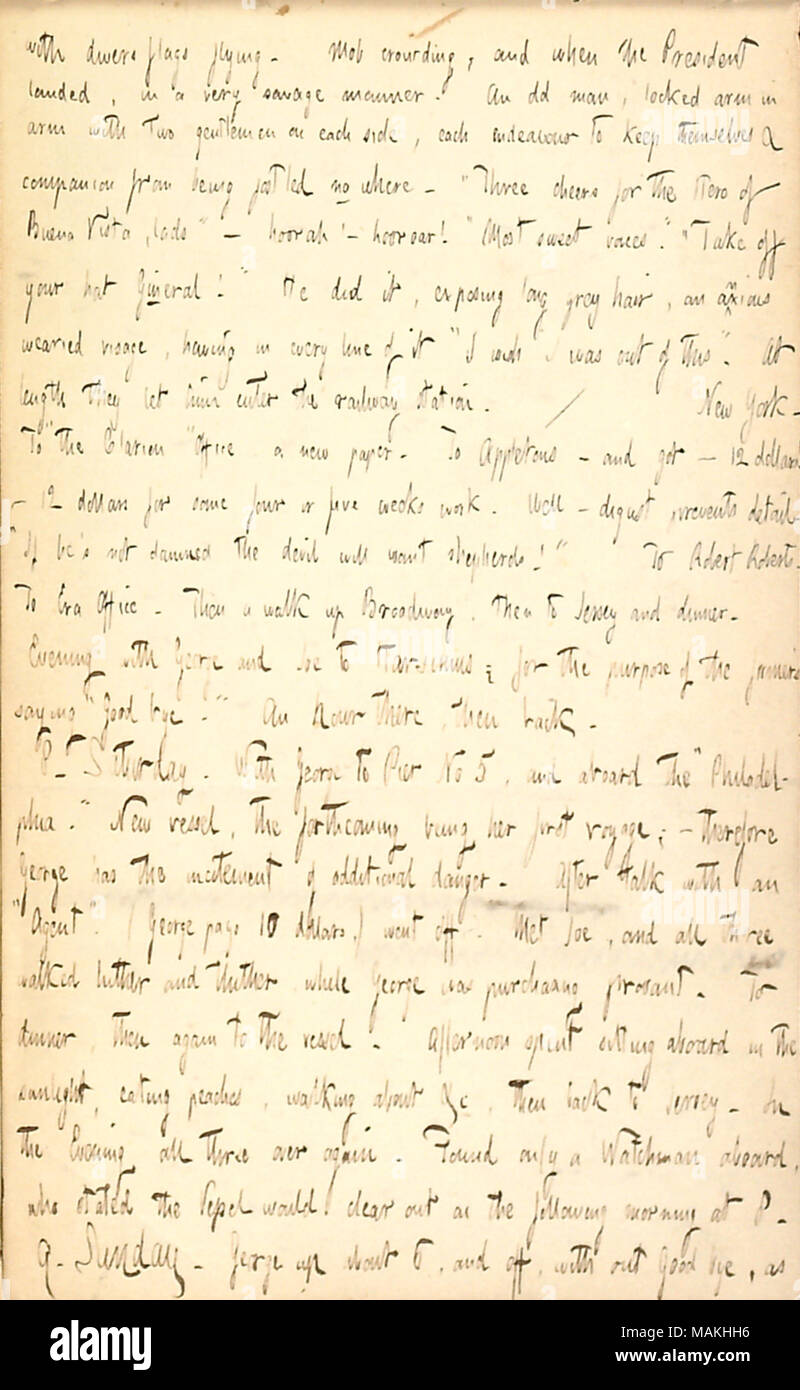 with divers flags flying. Mob crowding, and when the President
landed, in a very savage manner. An old man, locked arm in
arm with two gentlemen on each side, each endeavour to keep themselves &
companion from being jostled no where. "Three cheers for the Hero of
Buena Vista, lads" - hoorah! - hooroar! "Most sweet voices." "Take off
your hat Gineral!" He did it, exposing long grey hair, an anxious
wearied visage, having in every line of it "I wish I was out of this". At
length they let him enter the railway station. / New York.
To "the Clarion" Office a new paper. To Appletons - and got - 12 dollars
- 12 dollars for some four or five weeks work. Well - disgust prevents detail.
"If he's not damned the devil will want shepherds!" To Robert Roberts.
To Era Office. Then a walk up Broadway, then to Jersey and dinner.
Evening with George and Joe to ; for the purpose of the former's
saying "Good bye." An hour there, then back.
8. Saturday. With George to Pier No 5, and aboard the "Philadel-
phia." New vessel, the forthcoming being her first voyage; - therefore
George has the incitement of additional danger. After talk with an
"Agent". (George pays 10 dollars,) went off. Met Joe, and all three
walked hither and thither while George was purchasing provant. To
dinner, then again to the vessel. Afternoon spent sitting aboard in the
sunlight, eating peaches, walking about &c, then back to Jersey. In
the Evening all three over again. Found only a Watchman aboard,
who stated the Vessel would clear out on the following morning at 8.
9. Sunday. George up about 6, and off, with out Good bye, as
alamy
Image ID: MAKHH6
www.alamy.com